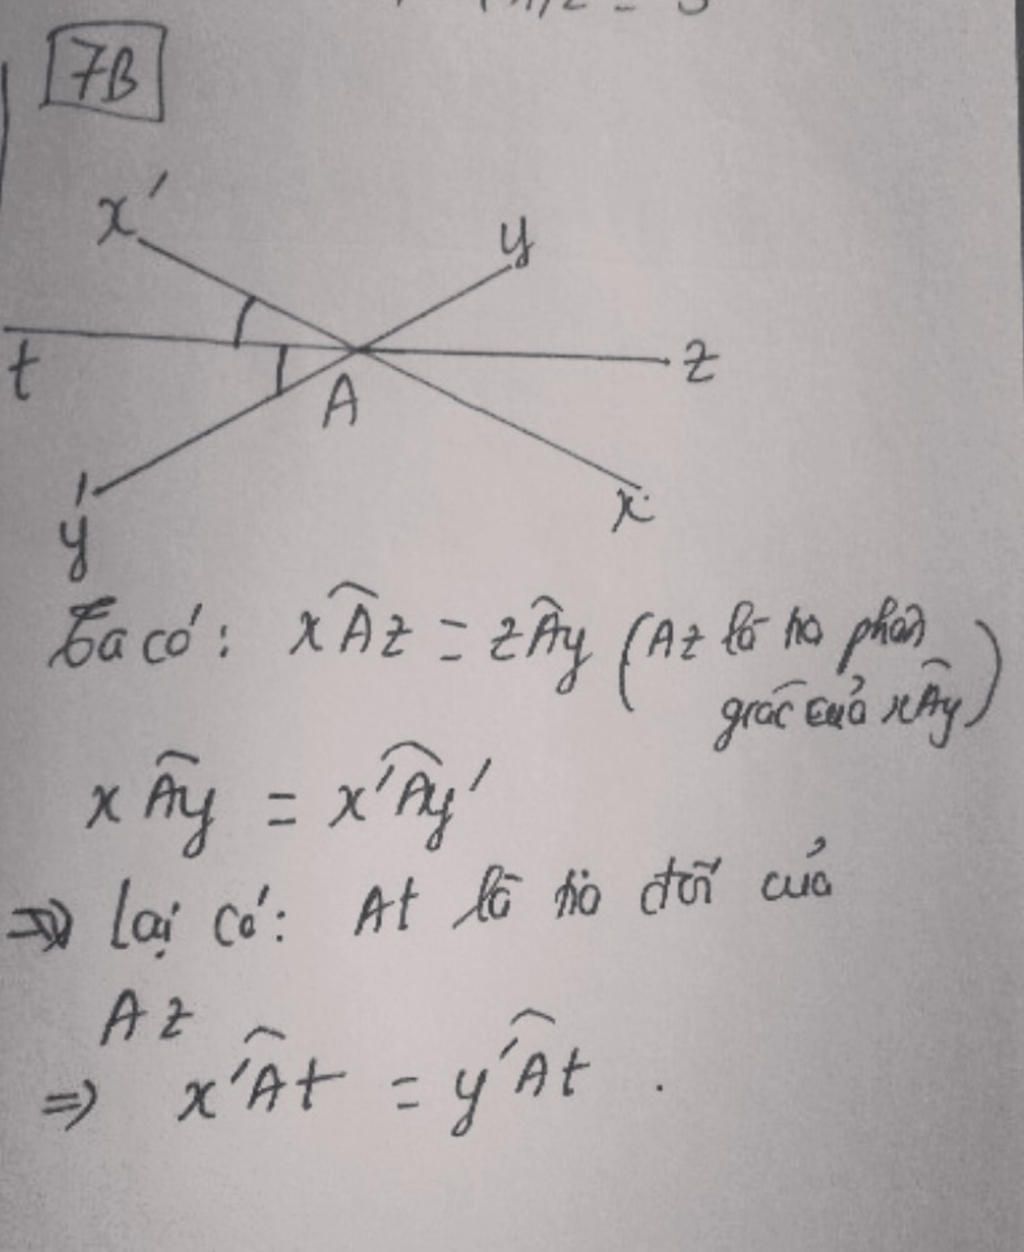 7B
x'
y
t
z
A
y'
x
Ta có: xÂz = zÂy (Az là tia phân
giác của xÂy)
xÂy = x'Ây'
=> Lại có: At là tia đối của
Az
=> x'Ât = y'Ât.